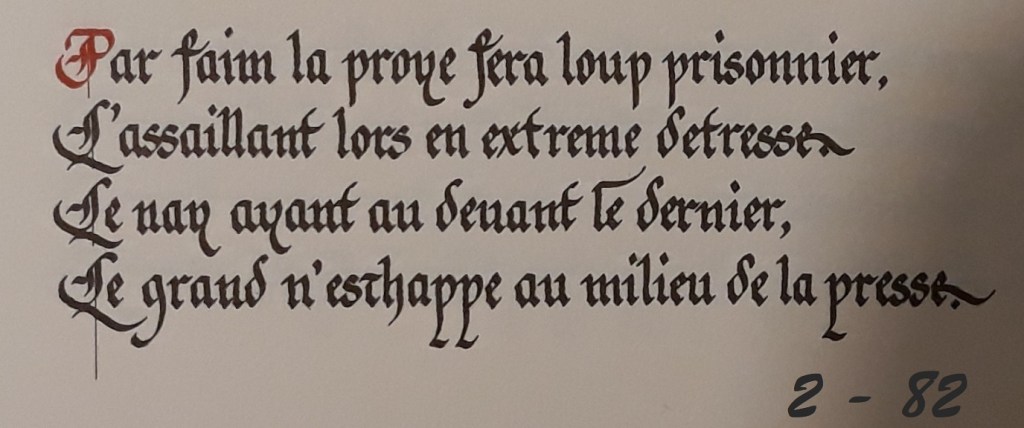 Par faim la proye fera loup prisonnier,
L'assaillant lors en extreme detresse.
Le nay ayant au deuant le dernier,
Le grand n'eschappe au milieu de la presse.
2 - 82